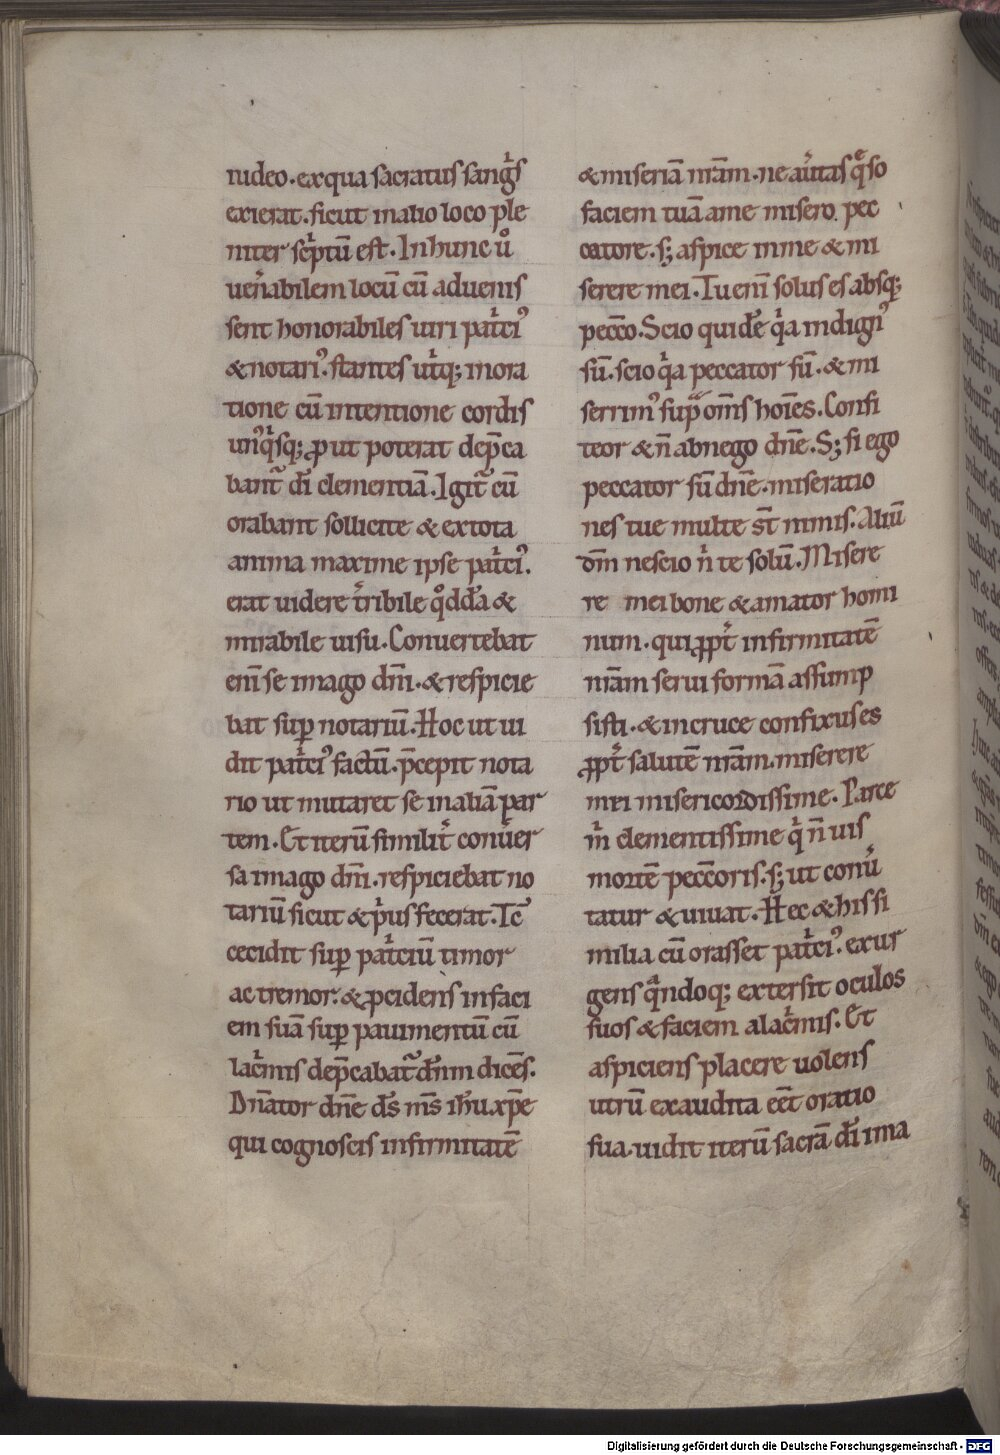 iudeo. ex qua sacratus sang̍s
exierat. sicut in alio loco ple
niter sc̍ptū est. In hunc ů
uen̍abilem locū cū aduenis
sent honorabiles uiri pat̍ci᾿
& notari᾿. stantes ut̍q; in ora
tione cū intentione cordis
un᾿q̍sq; ꝓut poterat dep̄ca
bant̃ dī clementiā. Igit̃ cū
orabant sollicite & ex tota
anima maxime ipse pat̍ci᾿.
erat uidere t̍ribile q̊ddā &
mirabile uisu. Conuertebat
enī se imago dn̄i. & respicie
bat suꝑ notariū. Hoc ut ui
dit pat̍ci᾿ factū. p̄cepit nota
rio ut mutaret se in aliā par
tem. Et iterū similit̍ conu̍er
sa imago dn̄i. respiciebat no
tariū sicut & p̍us fecerat. Tc̄
cecidit suꝑ pat̍ciū timor
ac tremor. & ꝓcidens in faci
em suā suꝑ pauimentū cū
lac̍mis dep̄cabat̃ dn̄m dicēs.
Dn̄ator dn̄e ds̄ ms̄ ihū xp̄e
qui cognoscis infirmitatē
& miseriā nr̄am. ne au̍tas q̄so
faciem tuā a me misero pec
catore. s; aspice in me & mi
serere mei. Tu enī solus es absq;
pecc̄o. Scio quidē q̍a indign᾿
sū. scio q̍a peccator sū. & mi
serrim᾿ sup̄ om̄s hoīes. Confi
teor & n̄ abnego dn̄e. S; si ego
peccator sū dn̄e. miseratio
nes tue multe st̄ nimis. Aliū
dm̄ nescio n̍ te solū. Misere
re mei bone & amator homi
num. qui ꝓpt̍ infirmitatē
nr̄am serui formā assump
sisti. & in cruce confixus es
ꝓpt̍ salutē nr̄am. miserere
mei misericordissime. Parce
m̍ clementissime q̍ n̄ uis
mortē pecc̄oris. s; ut conu̍
tatur & uiuat. Hec & his si
milia cū orasset pat̍ci᾿. exur
gens q̍ndoq; extersit oculos
suos & faciem a lac̍mis. Et
aspiciens placere uolens
utrū exaudita eēt oratio
sua. uidit iterū sacrā dī ima
Digitalisierung gefördert durch die Deutsche Forschungsgemeinschaft - DFG